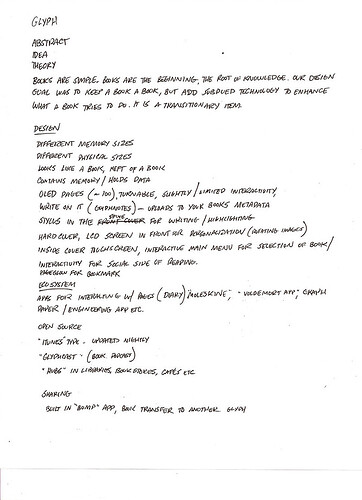 GLYPH
ABSTRACT
IDEA
THEORY
BOOKS ARE SIMPLE. BOOKS ARE THE BEGINNING, THE ROOT OF KNOWLEDGE. OUR DESIGN
GOAL WAS TO KEEP A BOOK A BOOK, BUT ADD SUBDUED TECHNOLOGY TO ENHANCE
WHAT A BOOK TRIES TO DO. IT IS A TRANSITIONARY ITEM.
DESIGN
DIFFERENT MEMORY SIZES
DIFFERENT PHYSICAL SIZES
LOOKS LIKE A BOOK, KEPT OF A BOOK
CONTAINS MEMORY / HOLDS DATA
OLED PAGES (~100), TURNABLE, SLIGHTLY / LIMITED INTERACTIVITY
WRITE ON IT (GLYPHNOTES) - UPLOADS TO YOUR BOOKS METADATA
STYLUS IN THE FRONT COVER SPINE FOR WRITING / HIGHLIGHTING
HARDCOVER, LCD SCREEN IN FRONT FOR PERSONALIZATION (ROTATING IMAGES)
INSIDE COVER TOUCHSCREEN, INTERACTIVE MAIN MENU FOR SELECTION OF BOOK/
INTERACTIVITY FOR SOCIAL SIDE OF READING.
RIBBON FOR BOOKMARK
ECOSYSTEM
APPS FOR INTERACTING W/ PAGES (DIARY) "MOLESKINE", "VOLDEMORT APP", GRAPH
PAPER / ENGINEERING APP ETC.
OPEN SOURCE
"ITUNES" TYPE - UPDATED NIGHTLY
"GLYPHCAST" - (BOOK PODCAST)
"HUBS" IN LIBRARIES, BOOK STORES, CAFÉS ETC
SHARING
BUILT IN "BUMP" APP, BOOK TRANSFER TO ANOTHER GLYPH